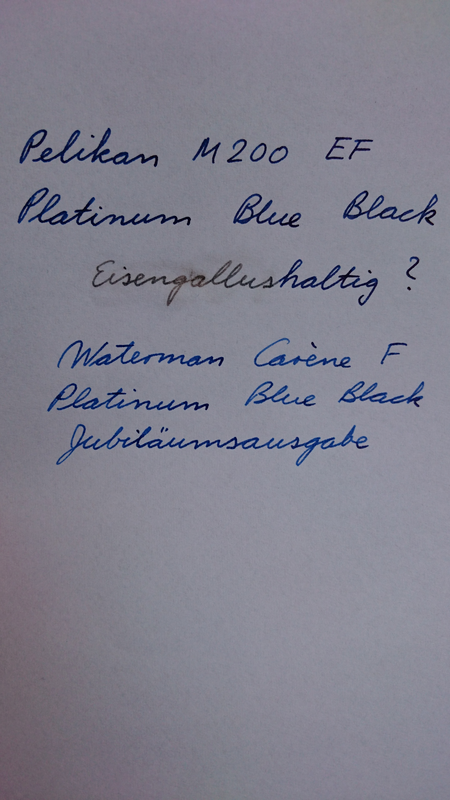 Pelikan M200 EF
Platinum Blue Black
Eisengallushaltig ?
Waterman Carène F
Platinum Blue Black
Jubiläumsausgabe